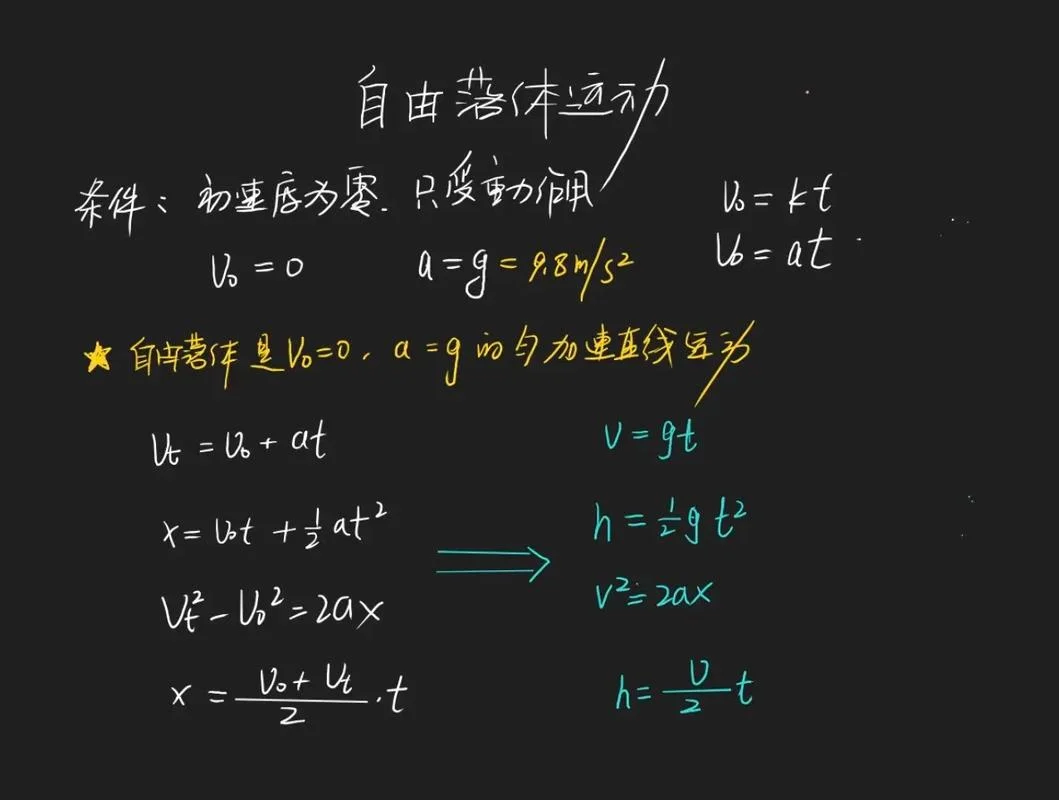 自由落体运动
条件：初速度为零．只受重力作用
V₀ = kt
V₀ = 0 a = g = 9.8m/s²
V₀ = at
★ 自由落体是V₀=0，a=g的匀加速直线运动
Vt = V₀ + at
V = gt
x = V₀t + ½at²
h = ½gt²
Vt² - V₀² = 2ax
V² = 2ax
x = (V₀ + Vt)/2 · t
h = V/2 t